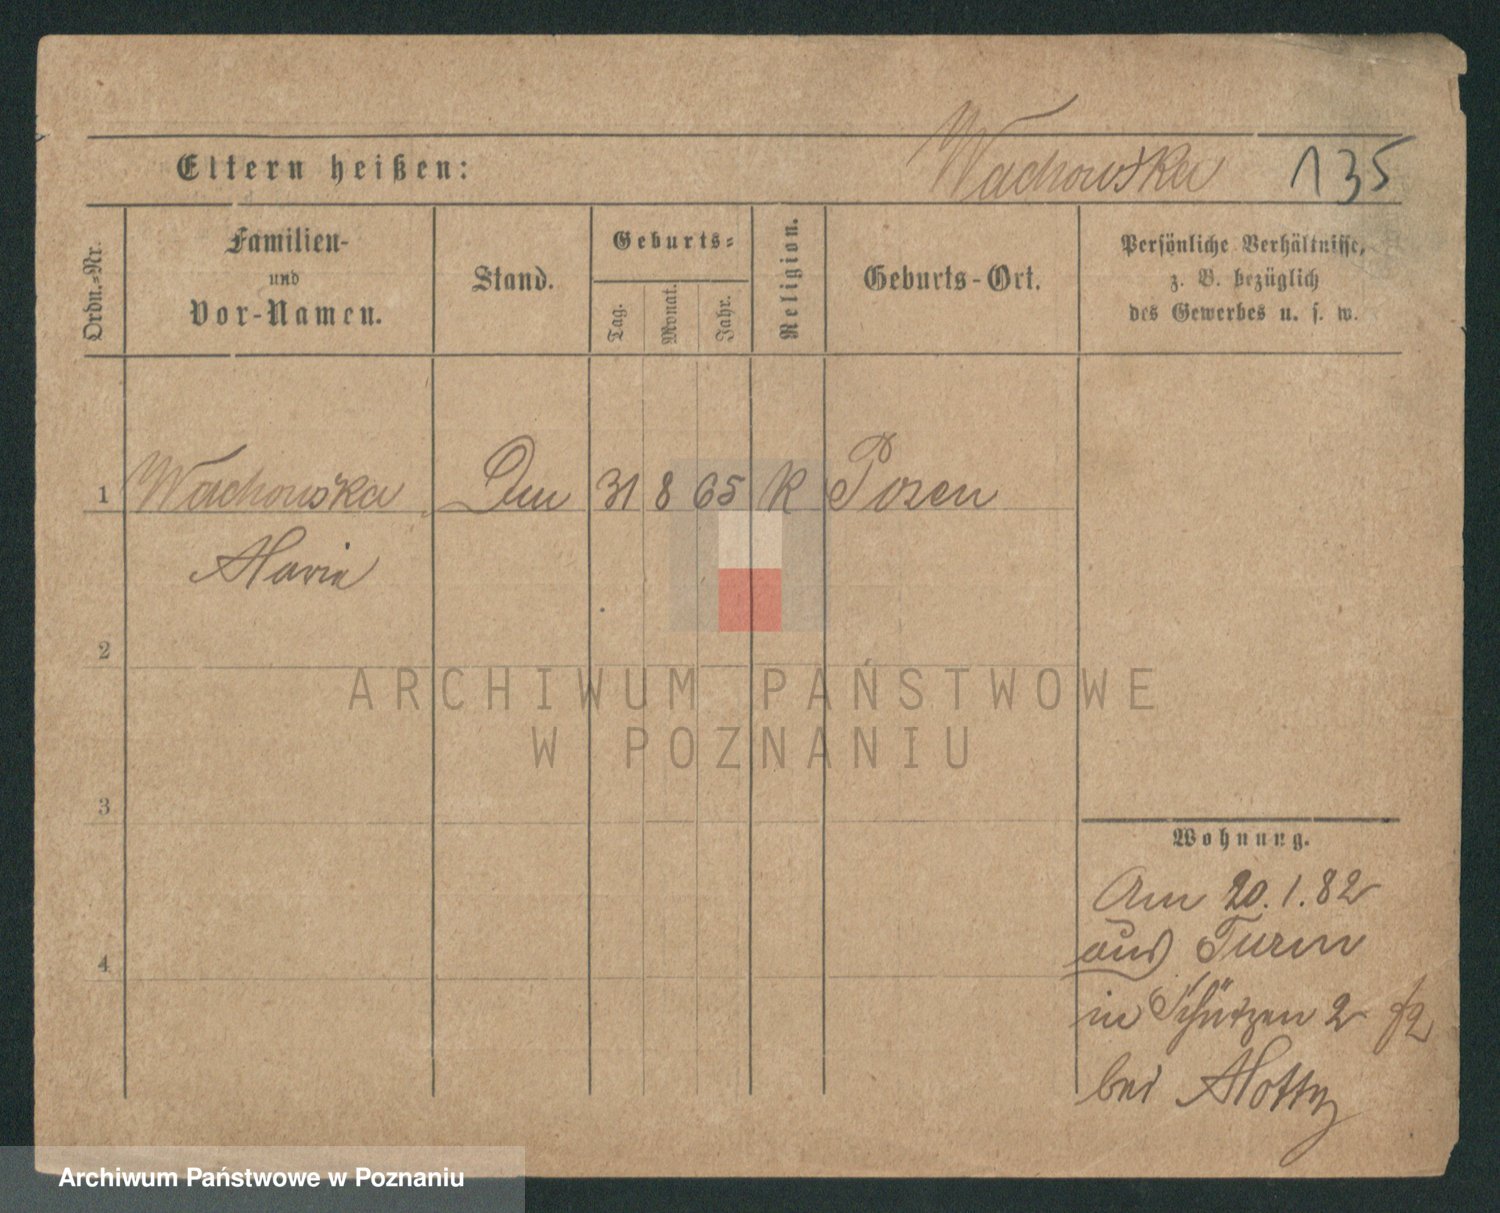 Wachowska 135
Eltern heißen:
Ordn.-Nr.
Familien-
und
Vor-Namen.
Stand.
Geburts-
Tag.
Monat.
Jahr.
Religion.
Geburts-Ort.
Persönliche Verhältnisse,
z. B. bezüglich
des Gewerbes u. s. w.
1 Wachowska 31 8 65 K Posen
Marie
2
3
4
Wohnung.
Am 20.1.82
aus
in Schützen 2
bei
ARCHIWUM PAŃSTWOWE
W POZNANIU
Archiwum Państwowe w Poznaniu